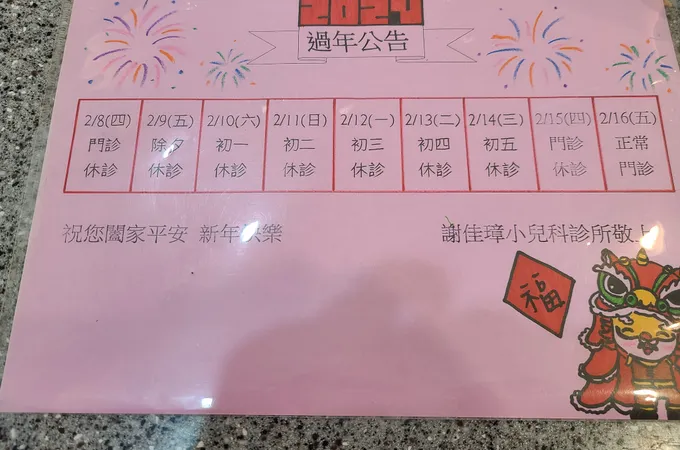 2024
過年公告
2/8(四) 2/9(五) 2/10(六) 2/11(日) 2/12(一) 2/13(二) 2/14(三) 2/15(四) 2/16(五)
門診 除夕 初一 初二 初三 初四 初五 門診 正常
休診 休診 休診 休診 休診 休診 休診 休診 門診
祝您闔家平安 新年快樂 謝佳璋小兒科診所敬上
福